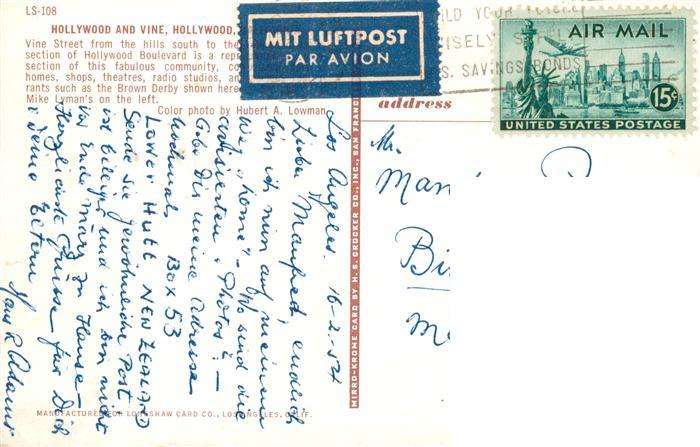 LS-108
HOLLYWOOD AND VINE, HOLLYWOOD,
Vine Street from the hills south to the
section of Hollywood Boulevard is a
section of this fabulous community,
homes, shops, theatres, radio studios, and
rants such as the Brown Derby shown here
Mike Lyman's on the left.
Color photo by Hubert A. Lowman
MIT LUFTPOST
PAR AVION
YOUR
WISELY
U.S. SAVINGS BONDS
AIR MAIL
15¢
UNITED STATES POSTAGE
address
Los Angeles. 16-2-54
Lieber Manfred, endlich
bin ich nun auf meinem
Way "home" - Wo sind die
Photos? -
Gebe Dir meine Adresse
nochmals Box 53
Lower Hutt NEW ZEALAND
Sende sie gewöhnliche Post
ist billiger und ich bin nicht
vor Ende März zu Hause -
Herzlichste Grüsse für Dich
& Deine Eltern
Hans R Adams
Mr.
Man
Bi
MIRRO-KROME CARD BY H. S. CROCKER CO., INC., SAN FRANC
MANUFACTURED FOR LONGSHAW CARD CO., LOS ANGELES, CALIF.